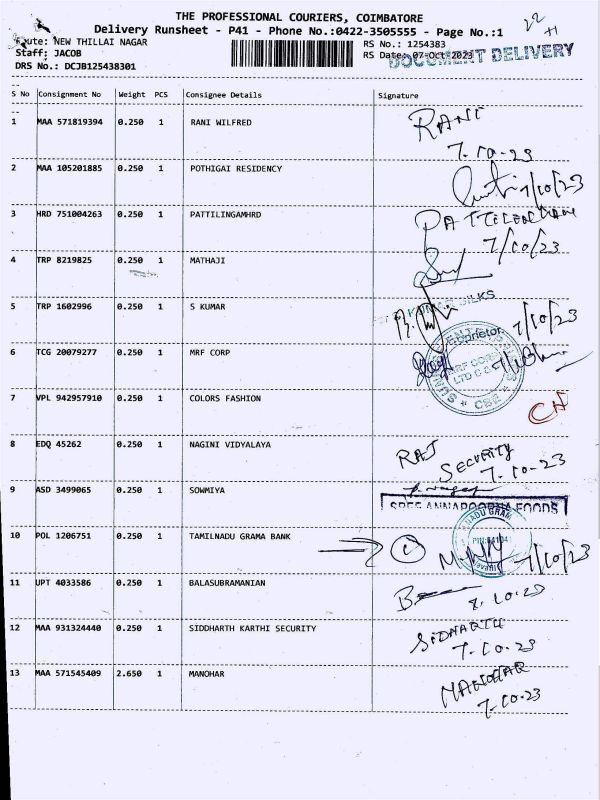 THE PROFESSIONAL COURIERS, COIMBATORE
Delivery Runsheet - P41 - Phone No.:0422-3505555 - Page No.:1
22
Route: NEW THILLAI NAGAR
RS No.: 1254383
Staff: JACOB
RS Date: 07-Oct-2023
DOCUMENT DELIVERY
DRS No.: DCJB125438301
S No Consignment No Weight PCS Consignee Details Signature
1 MAA 571819394 0.250 1 RANI WILFRED RANI
7-10-23
2 MAA 105201885 0.250 1 POTHIGAI RESIDENCY
7/10/23
3 HRD 751004263 0.250 1 PATTILINGAMHRD
7/10/23
4 TRP 8219825 0.250 1 MATHAJI
5 TRP 1602996 0.250 1 S KUMAR
KUMAR SILKS
Proprietor
7/10/23
6 TCG 20079277 0.250 1 MRF CORP
CBE
7 VPL 942957910 0.250 1 COLORS FASHION
8 EDQ 45262 0.250 1 NAGINI VIDYALAYA RAJ
SECURITY
7-10-23
9 ASD 3499065 0.250 1 SOWMIYA
SREE ANNAPOORNA FOODS
10 POL 1206751 0.250 1 TAMILNADU GRAMA BANK
7/10/23
11 UPT 4033586 0.250 1 BALASUBRAMANIAN
8.10.23
12 MAA 931324440 0.250 1 SIDDHARTH KARTHI SECURITY SIDHARTH
7-10-23
13 MAA 571545409 2.650 1 MANOHAR MANOHAR
7-10-23